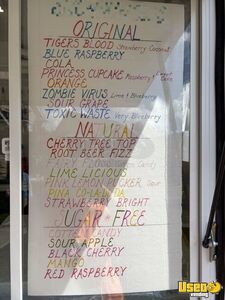 ORIGINAL
TIGERS BLOOD Strawberry Coconut
BLUE RASPBERRY
COLA
PRINCESS CUPCAKE Raspberry &
ORANGE
ZOMBIE VIRUS Lime & Blueberry
SOUR GRAPE
TOXIC WASTE Very Blueberry
NATURAL
CHERRY TREE TOP
ROOT BEER FIZZ
Candy
LIME LICIOUS
PINK LEMON PUCKER Sour
PINA CO-LA-LADA
STRAWBERRY BRIGHT
SUGAR FREE
COTTON CANDY
SOUR APPLE
BLACK CHERRY
MANGO
RED RASPBERRY
Used
Vending